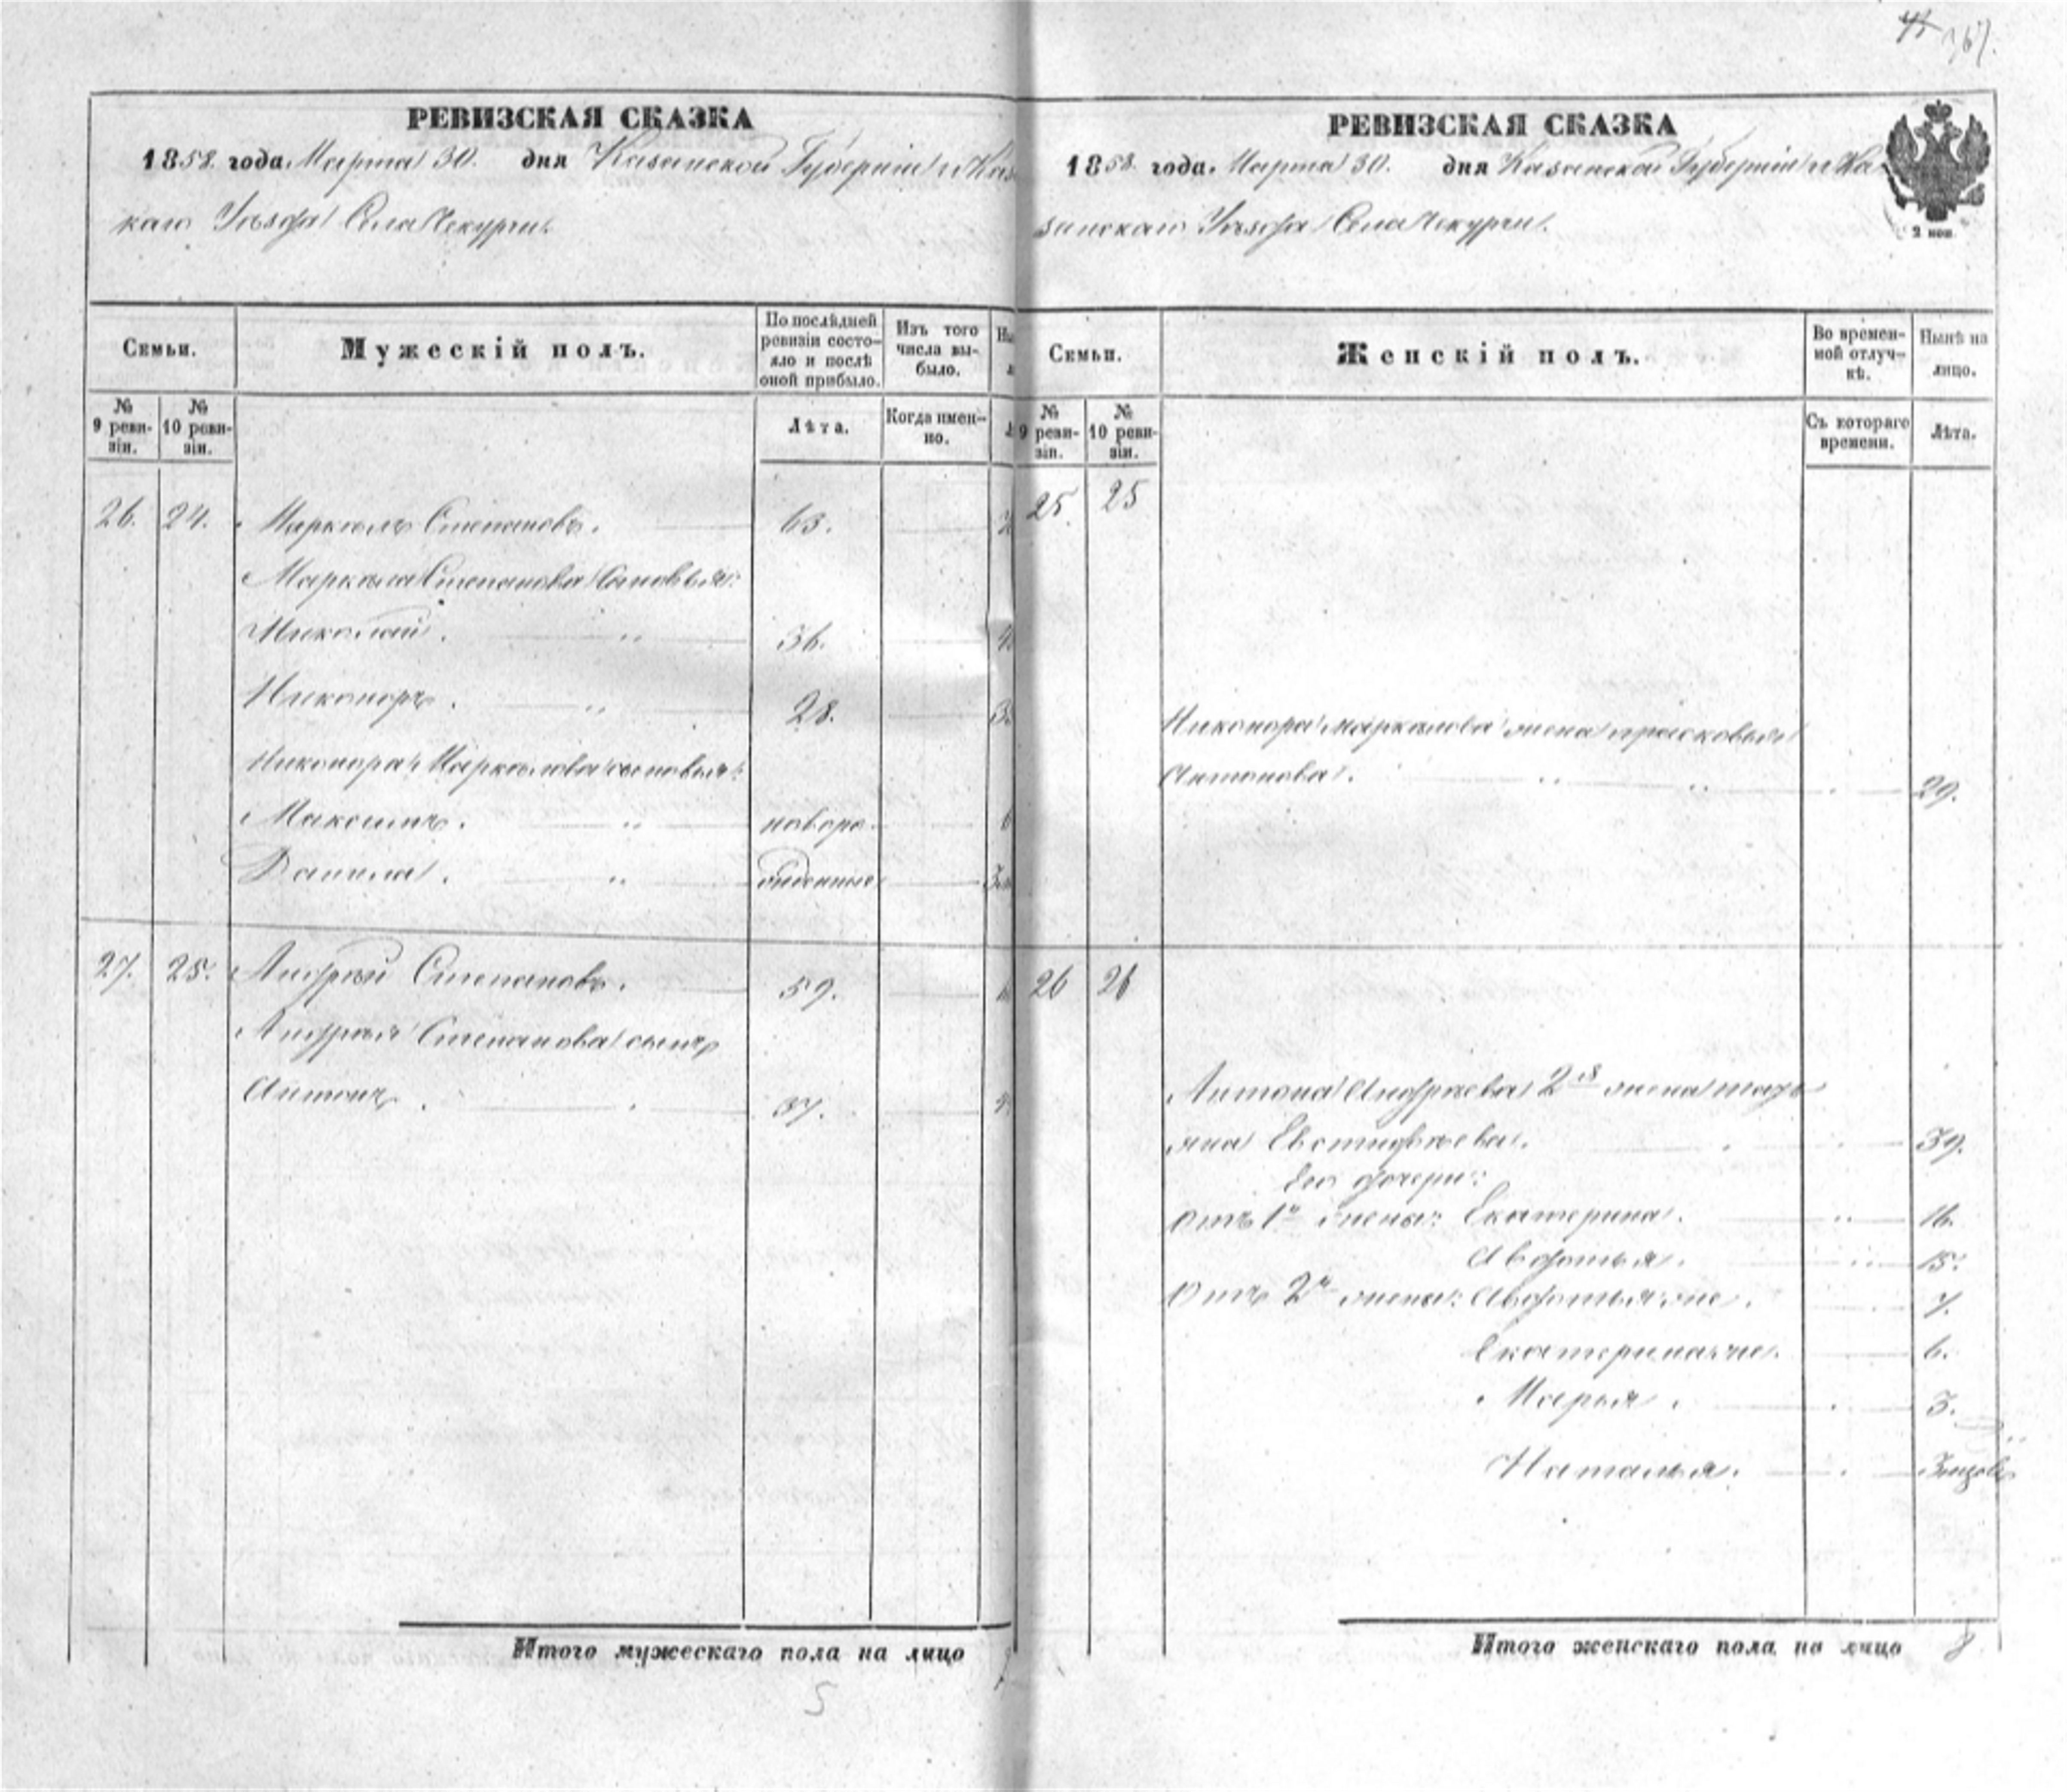 367.
РЕВИЗСКАЯ СКАЗКА
1858. года Марта 30. дня Казанской Губерніи и Каз
каго Уѣзда Села Чекурчи.
Семьи.
Мужескій полъ.
По послѣдней ревизіи состояло и послѣ оной прибыло.
Изъ того числа выбыло.
№ 9 ревизіи.
№ 10 ревизіи.
Лѣта.
Когда именно.
26. 24. Маркелъ Степановъ. 63.
Маркела Степанова сыновья:
Николай. " 36.
Никоноръ. " 28.
Никонора Маркелова сыновья:
Максимъ. " новоро
Данила. " жденные
27. 25. Андрей Степановъ. 59.
Андрея Степанова сынъ
Антонъ. 37.
Итого мужескаго пола на лицо
5
РЕВИЗСКАЯ СКАЗКА
1858. года. Марта 30. дня Казанской Губерніи и Ка
занскаго Уѣзда Села Чекурчи.
2 коп.
Семьи.
Женскій полъ.
Во временной отлучкѣ.
Нынѣ на лицо.
№ 9 ревизіи.
№ 10 ревизіи.
Съ котораго времени.
Лѣта.
25. 25
Никонора Маркелова жена Прасковья
Антонова. " " 29.
26 26
Антона Андреева 2я жена Татья
на Евстифѣева. 39.
Его дочери:
Отъ 1й жены: Екатерина. " 16.
Авдотья. " 15.
Отъ 2й жены: Авдотья же. 7.
Екатерина же. 6.
Марья. 3.
Наталья. 3 недѣл
Итого женскаго пола на лицо 8.